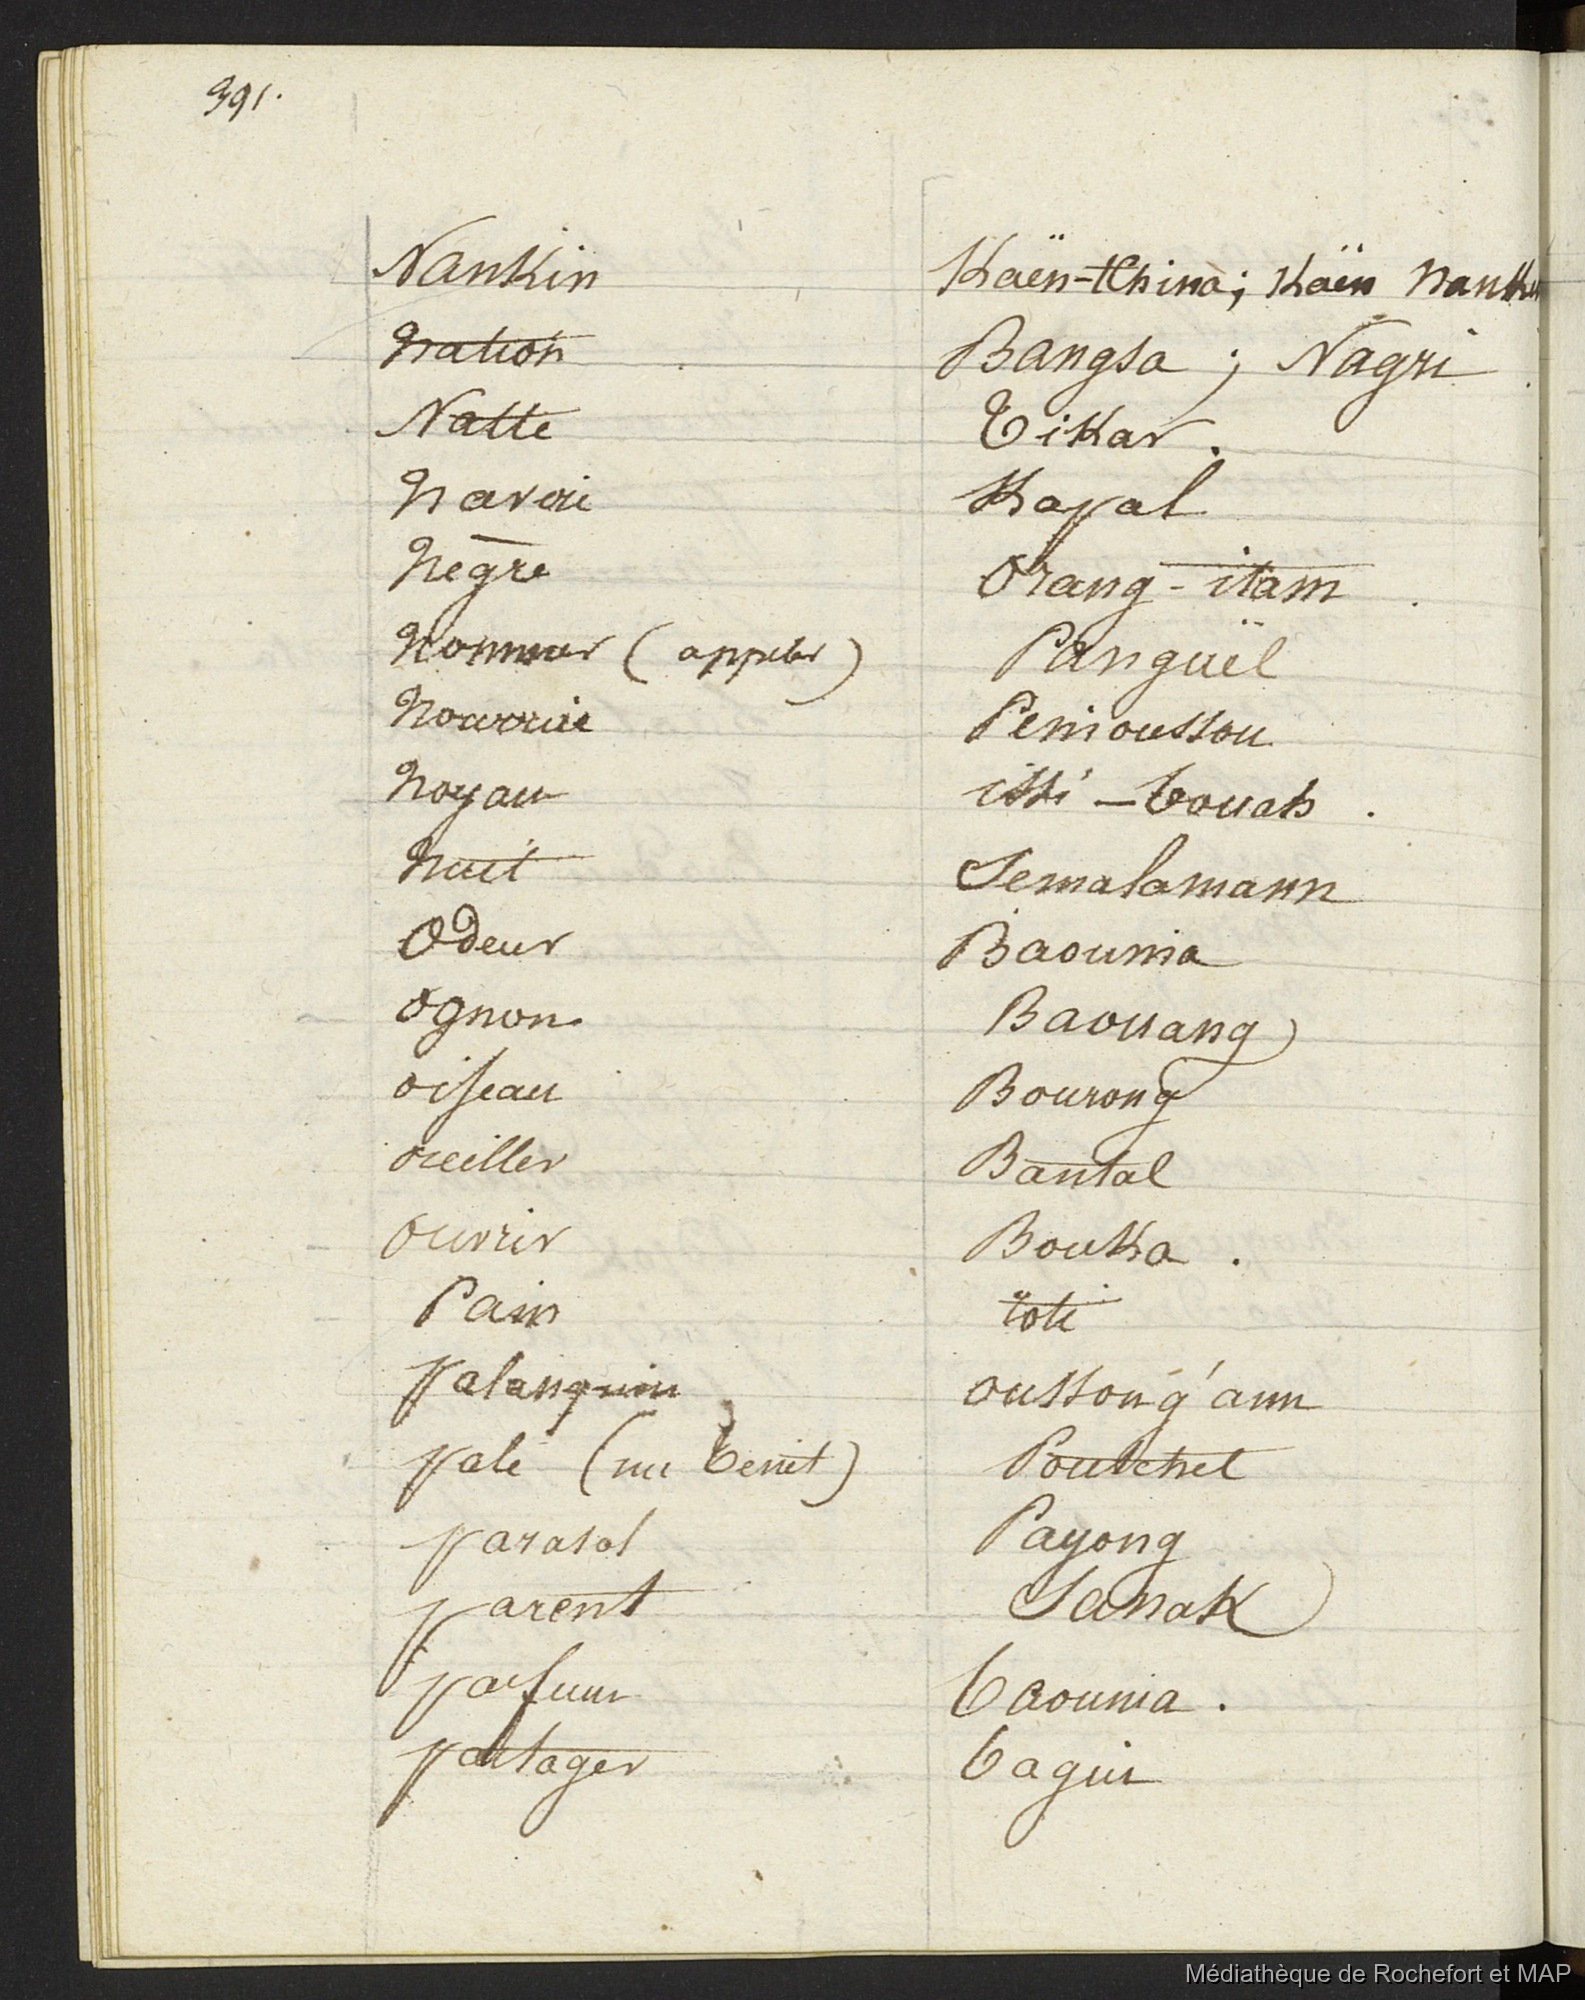 391.
Nankin Kaën-tchina; Kaën Nank
Nation Bangsa ; Nagri
Natte Tikar.
Navire Kapal
Negre Orang-itam
Nommer (appeler) Panguïl
Nourrire Penioussou
Noyau issi-bouah.
Nuit Semalamann
Odeur Baounia
Ognon Baouang
Oiseau Bourong
Oreiller Bantal
Ouvrir Bouka.
Pain roti
Palanquin oussong'ann
Pale (nu Benit) Poutchet
Parasol Payong
Parent Sanak
Parfum Baounia.
Partager Bagui
Médiathèque de Rochefort et MAP